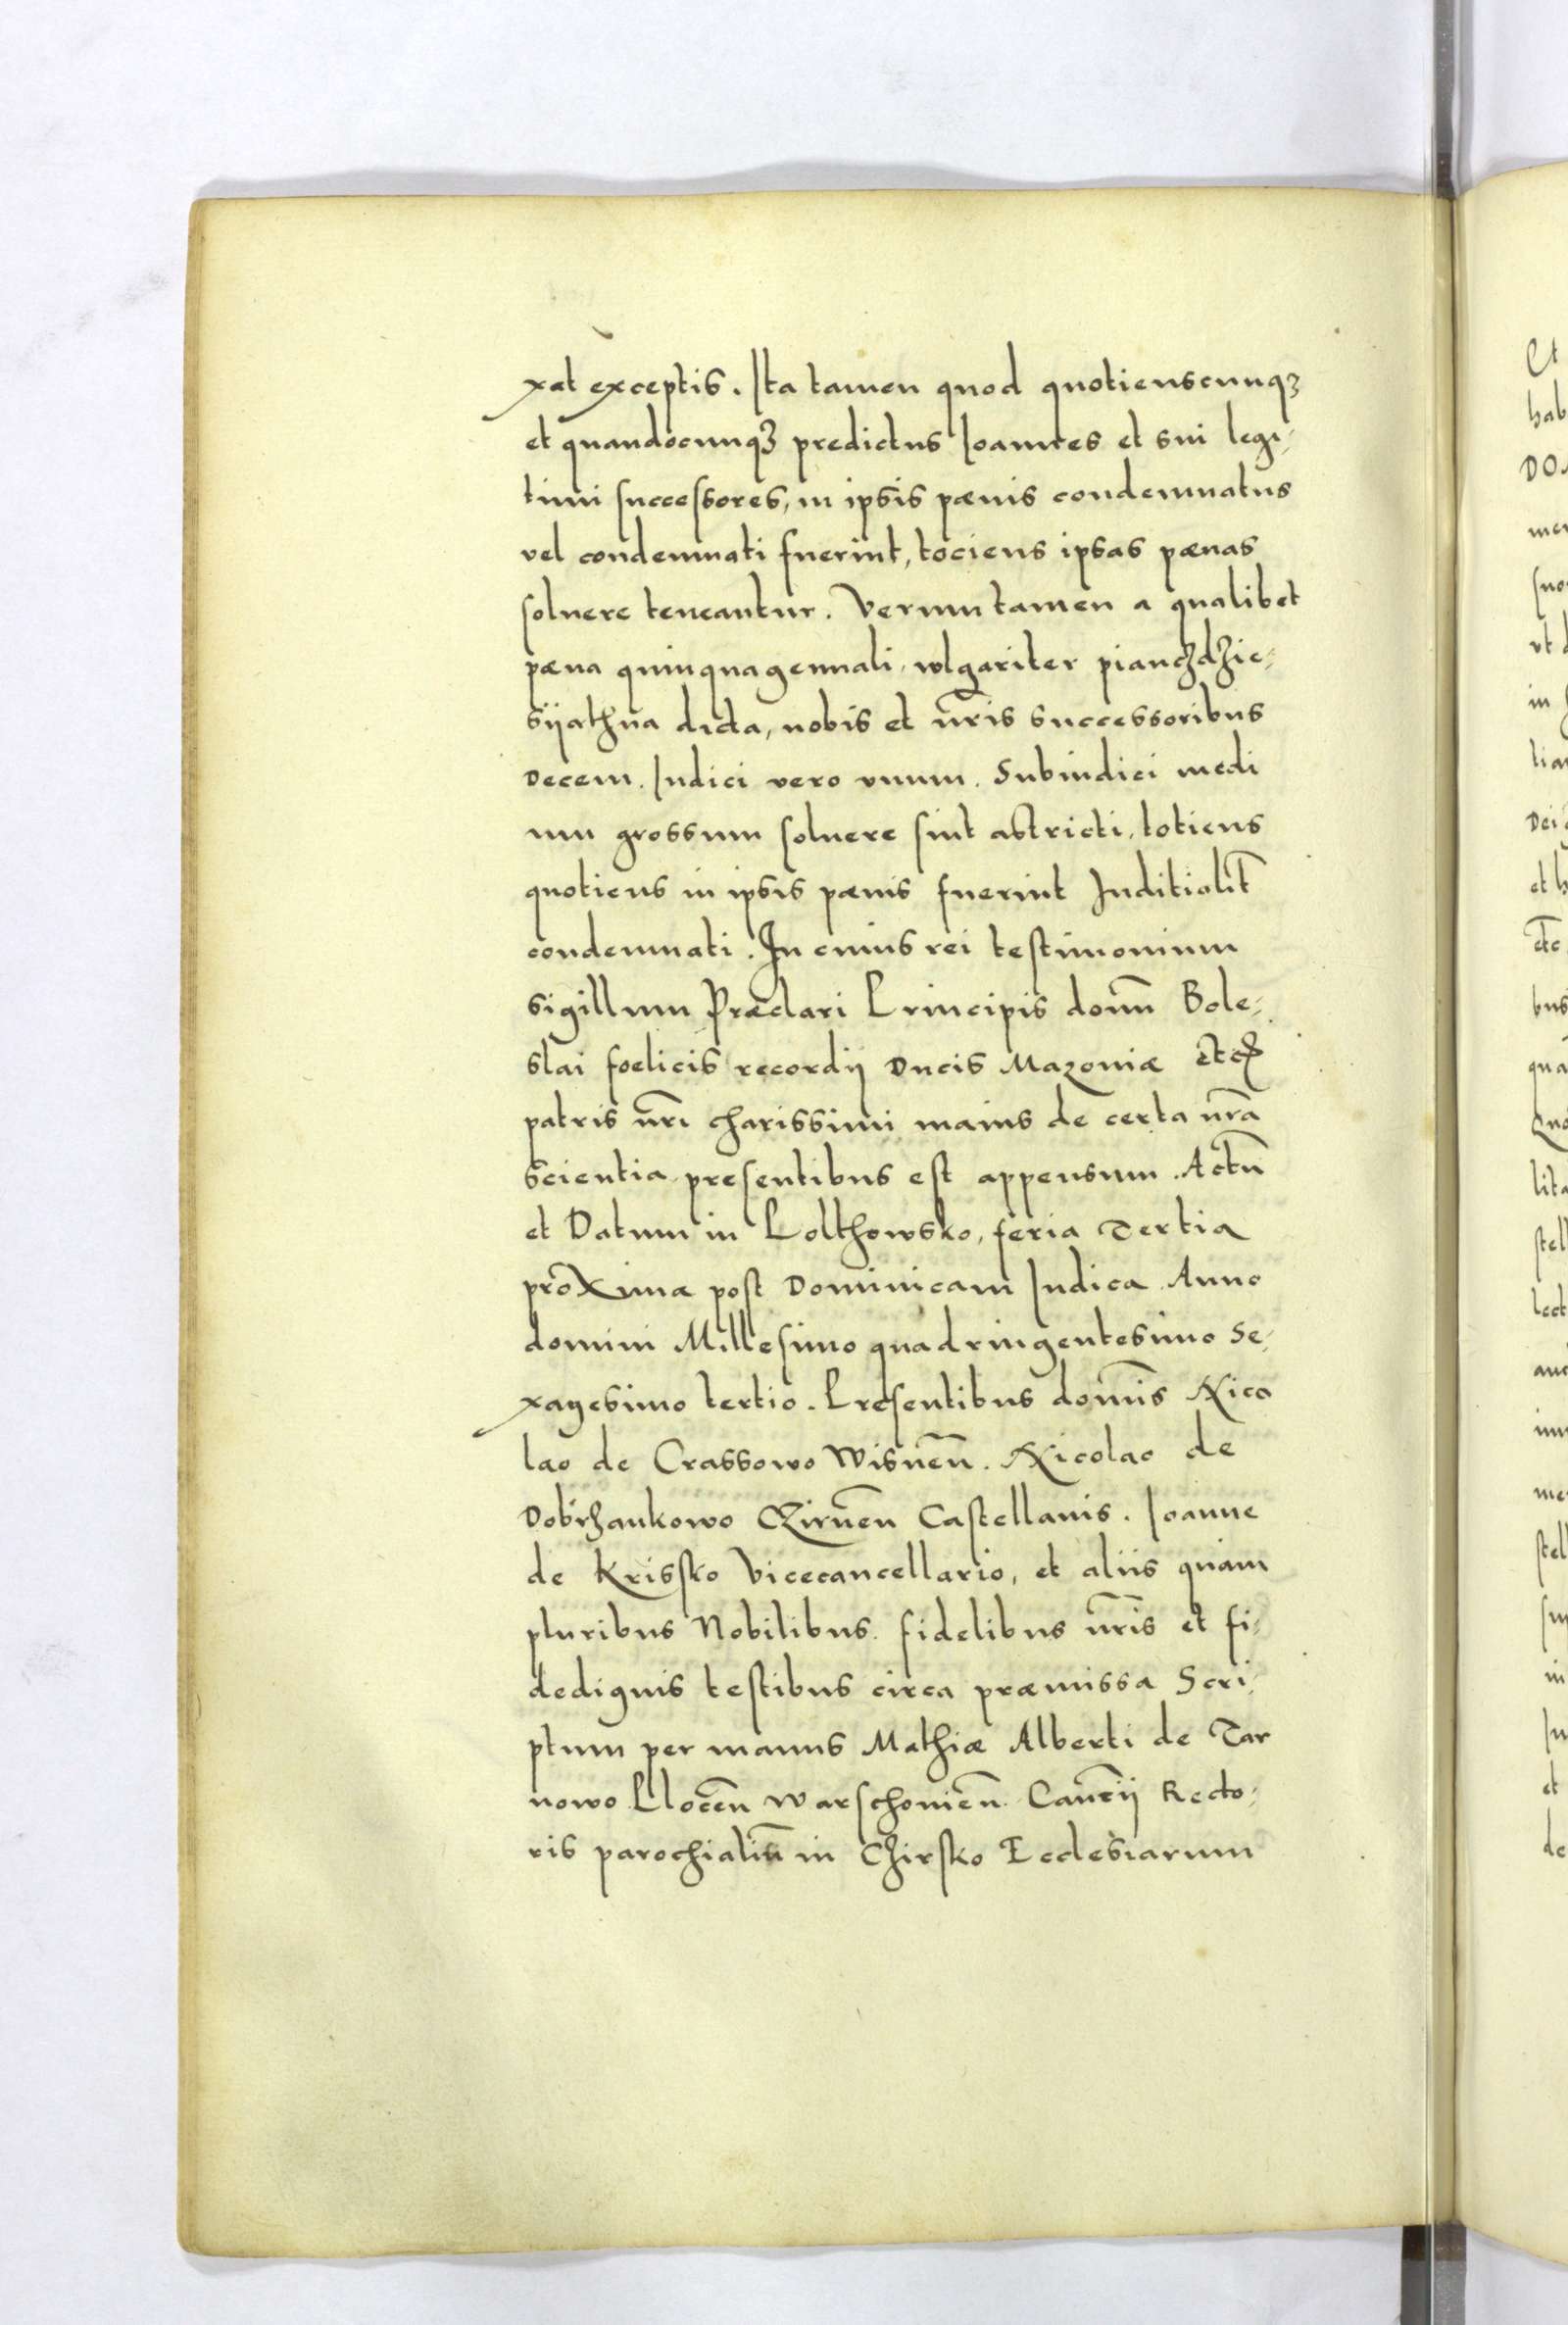 xat exceptis. Ita tamen quod quotienscunqꝫ
et quandocunqꝫ predictus Ioannes et sui legi-
timi successores, in ipsis pænis condemnatus
vel condemnati fuerint, tociens ipsas pænas
soluere teneantur. Verumtamen a qualibet
pæna quinquagennali, wlgariter pianczdzie-
siiathna dicta, nobis et nr̄is successoribus
decem. Iudici vero vnum. Subiudici medi
um grossum soluere sint astricti, totiens
quotiens in ipsis pænis fuerint Iuditialit̄
condemnati. In cuius rei testimonium
sigillum Præclari Principis domn̄ Bole-
slai foelicis recordii Ducis Mazouiæ etc̄
patris nr̄i charissimi maius de certa nr̄a
scientia presentibus est appensum. Actū
et Datum in Polthowsko, feria Tertia
proxima post Dominicam Iudica Anno
domini Millesimo quadringentesimo Se-
xagesimo tertio. Presentibus domīs Nico
lao de Crassowo Wisnēn. Nicolao de
Dobrzankowo Czirnēn Castellanis. Ioanne
de Krissko Vicecancellario, et aliis quam
pluribus Nobilibus. fidelibus nr̄is et fi-
dedignis testibus circa præmissa Scri-
ptum per manus Mathiæ Alberti de Tar
nowo Plocēn Warschouiēn. Canc̄ii Recto-
ris parochialiū in Czirsko Ecclesiarum